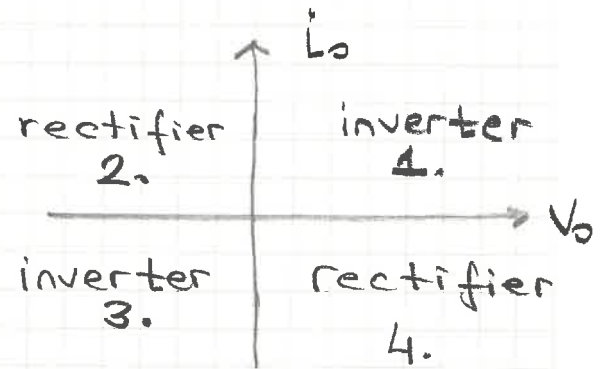 i₀
rectifier
2.
inverter
1.
v₀
inverter
3.
rectifier
4.